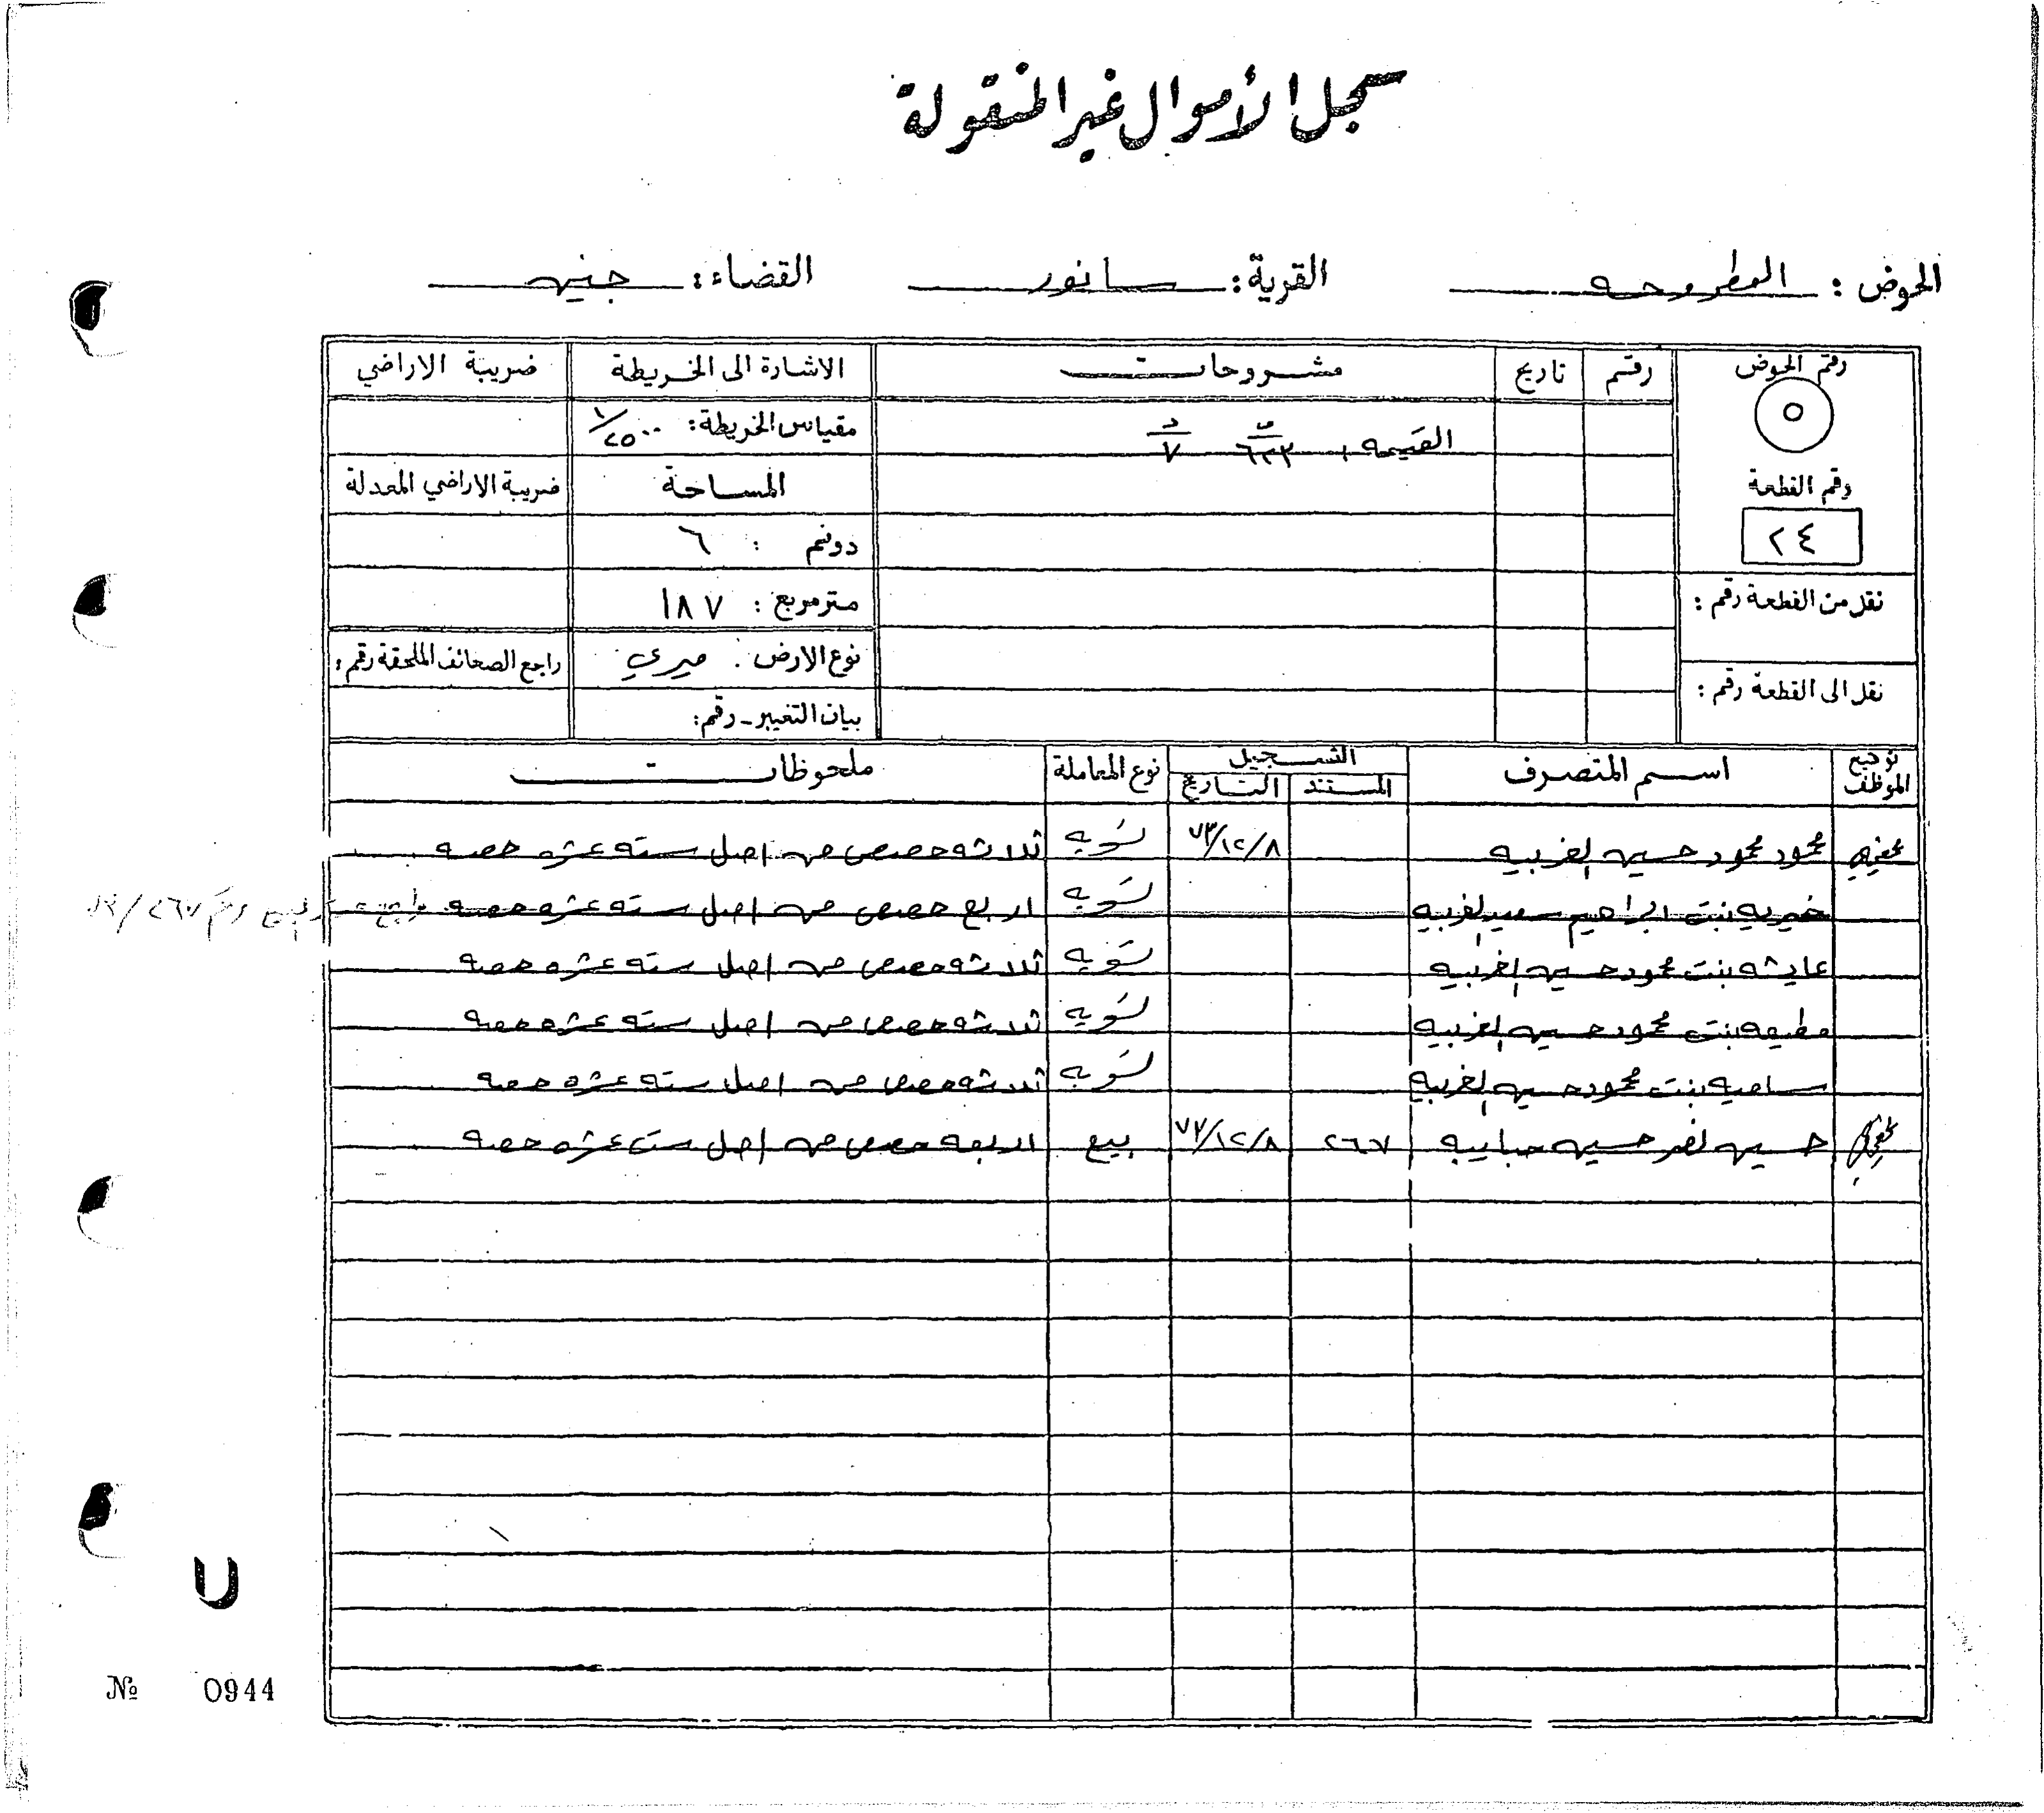 سجل الأموال غير المنقولة
الحوض : المطروحه القرية : سانور القضاء : جنين
رقم الحوض رقم تاريخ مشروحات الاشارة الى الخريطة ضريبة الاراضي
٥ القيمه ٦٢٣ ٧ مقياس الخريطة : ١/٢٥٠٠
رقم القطعة المساحة ضريبة الاراضي المعدلة
٢٤ دونم : ٦
نقل من القطعة رقم : مترمربع : ١٨٧
نوع الارض : ميري راجع الصحائف الملحقة رقم :
نقل الى القطعة رقم : بيان التغيير - رقم :
توقيع الموظف اسم المتصرف التسجيل نوع المعاملة ملحوظات
المستند التاريخ
محمود محمود حسين الغربيه ٧٣/١٢/٨ تسويه ثلاثه حصص من اصل سته عشره حصه
خيريه بنت ابراهيم سعيد الغربيه تسويه اربع حصص من اصل سته عشره حصه راجع رقم ٢٦٧
عايشه بنت محمود حسين الغربيه تسويه ثلاثه حصص من اصل سته عشره حصه
مطيعه بنت محمود حسين الغربيه تسويه ثلاثه حصص من اصل سته عشره حصه
ساميه بنت محمود حسين الغربيه تسويه ثلاثه حصص من اصل سته عشره حصه
حسين نصر حسين حبايبه ٢٦٧ ٧٣/١٢/٨ بيع اربعه حصص من اصل ست عشره حصه
№ 0944